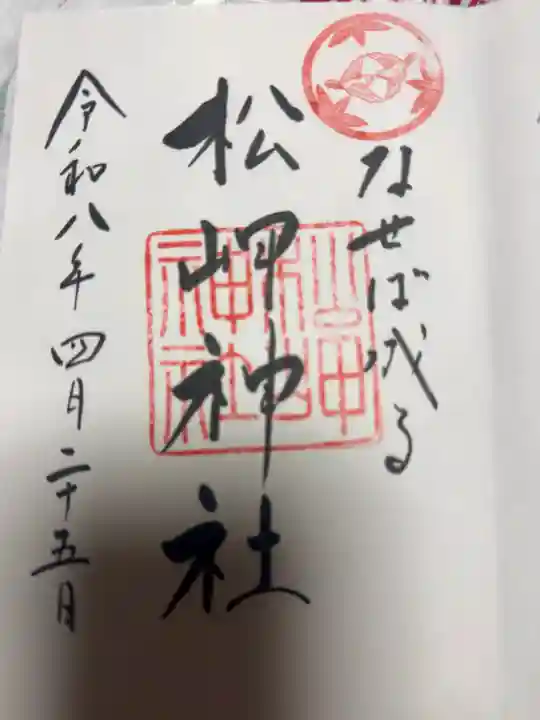 なせば成る
松岬神社
令和八年四月二十五日